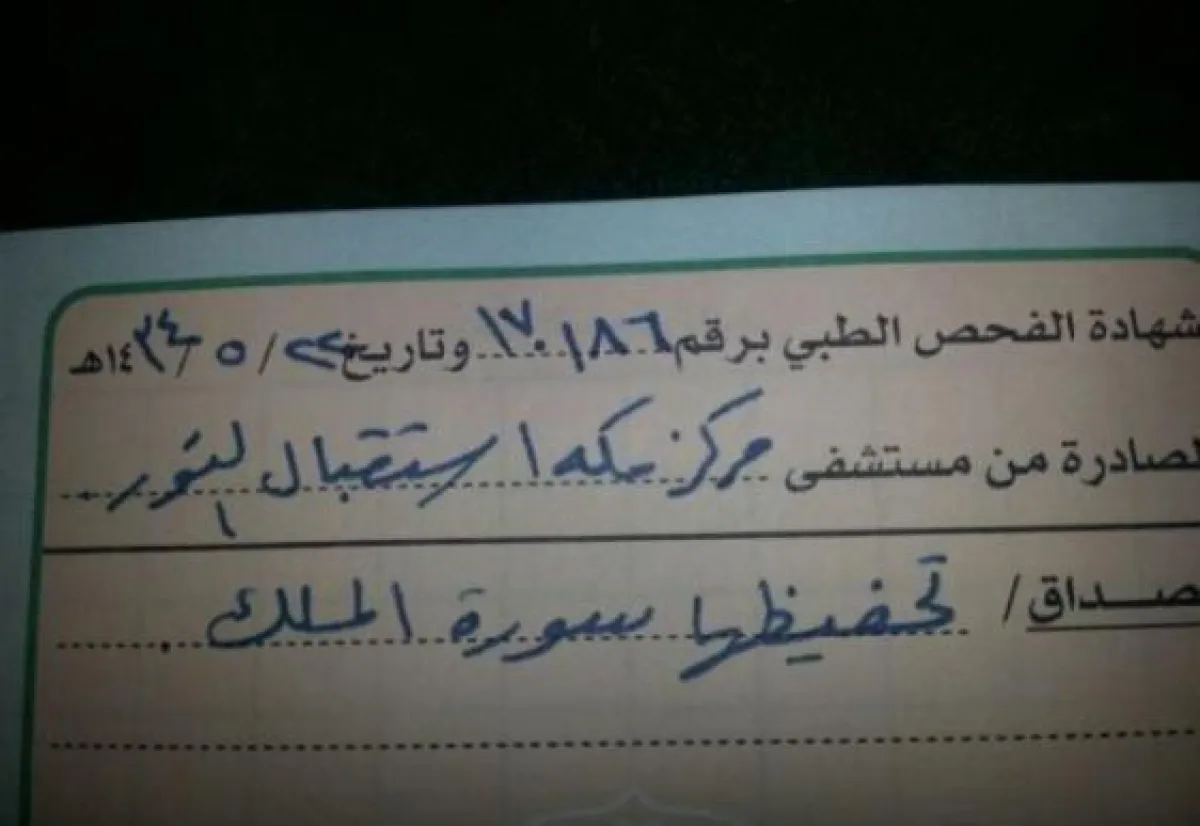 شهادة الفحص الطبي برقم ١٧٠١٨٦ وتاريخ ٢٢/٥/١٤٣٤هـ
لصادرة من مستشفى مركز مكه استقبال
صداق/ تحفيظها سورة الملك.